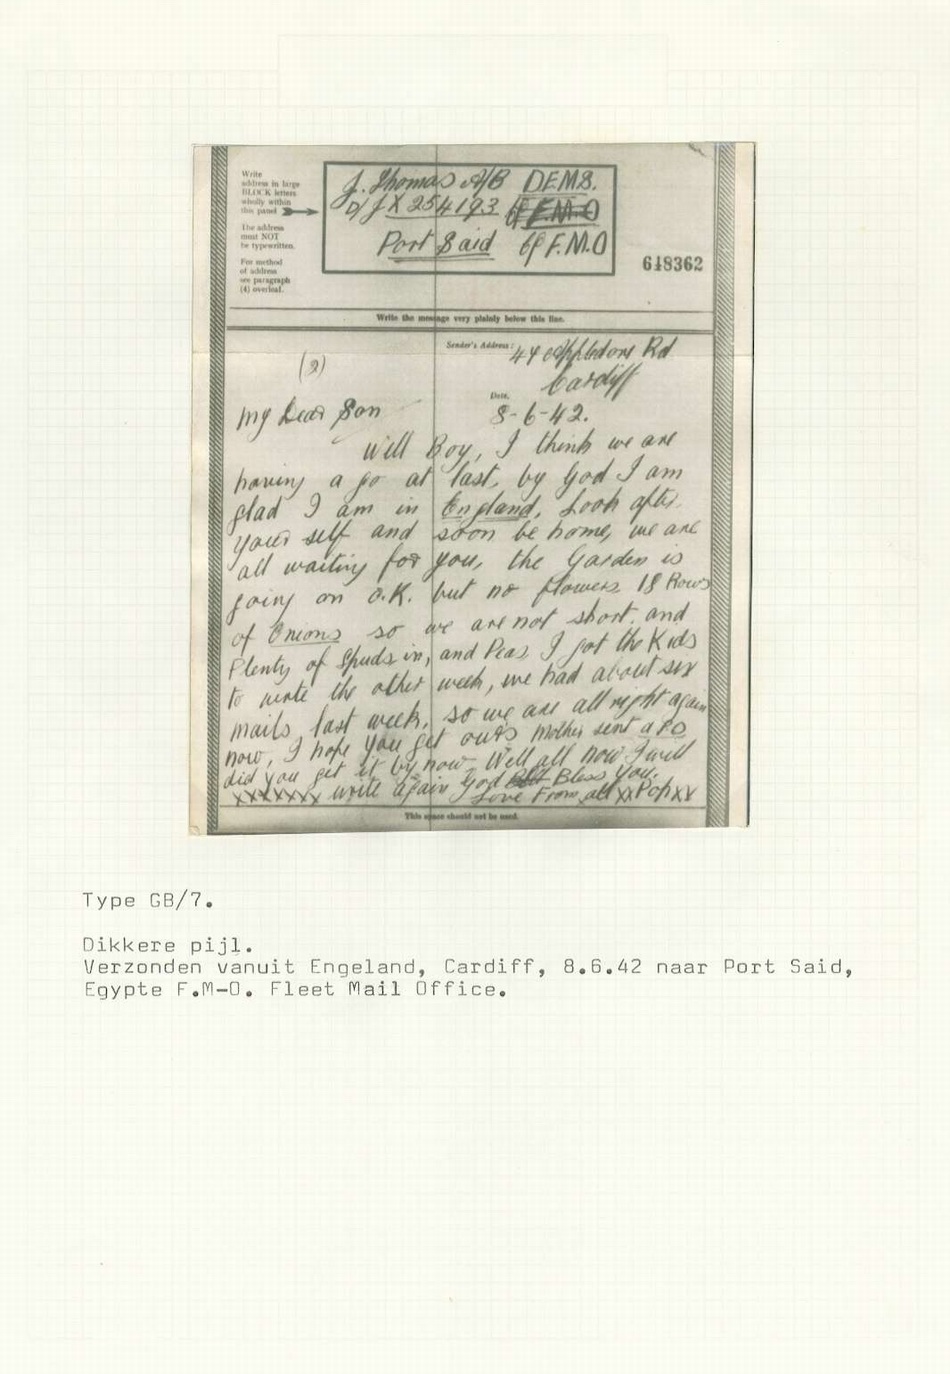 Write
address in large
BLOCK letters
wholly within
this panel
The address
must NOT
be typewritten.
For method
of address
see paragraph
(4) overleaf.
J. Thomas A/B DEMS.
D/JX 254193 c/o F.M.O
Port Said c/o F.M.O
618362
Write the message very plainly below this line.
Sender's Address: 44 Appledore Rd
Cardiff
(2)
Date. 8-6-42.
My Dear Son
Well Boy, I think we are
having a go at last, by God I am
glad I am in England, Look after
your self and soon be home, we are
all waiting for you, the Garden is
going on O.K. but no flowers 18 Rows
of Onions so we are not short. and
Plenty of Spuds in, and Peas I got the Kids
to write the other week, we had about six
mails last week, so we are all right again
now, I hope you get ours Mother sent a PO
did you get it by now. Well all now I will
xxxxxxx write again God Bless You.
Love From all xx Pop xx
This space should not be used.
Type GB/7.
Dikkere pijl.
Verzonden vanuit Engeland, Cardiff, 8.6.42 naar Port Said,
Egypte F.M-O. Fleet Mail Office.